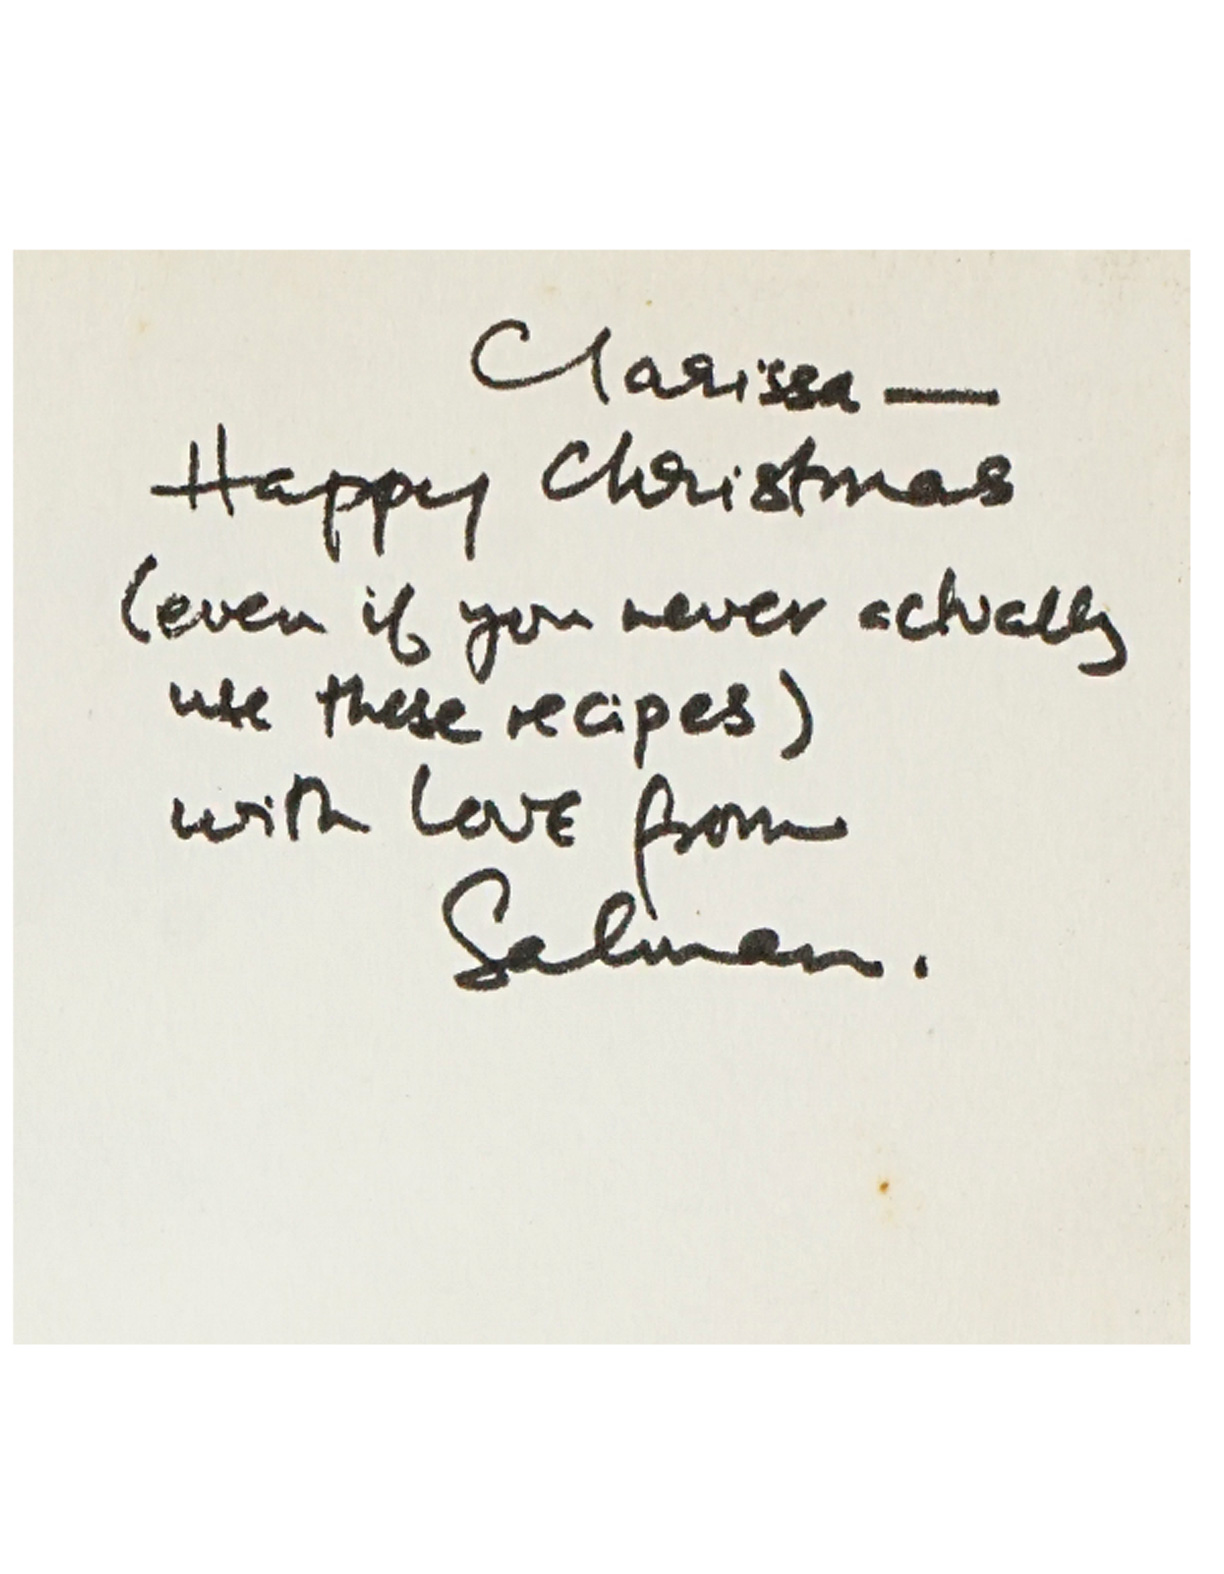 Clarissa —
Happy Christmas
(even if you never actually
use these recipes)
with love from
Salman.